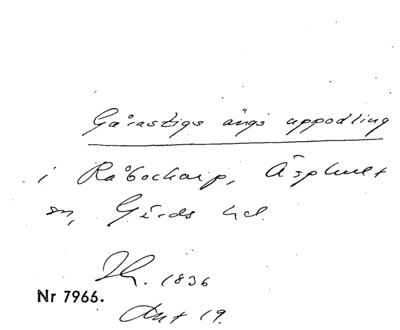 Gårastigs ängs uppodling
i Råbockarp, Äsphult
sn, Gärds hd.
Th. 1836
Nr 7966.
Akt 19.